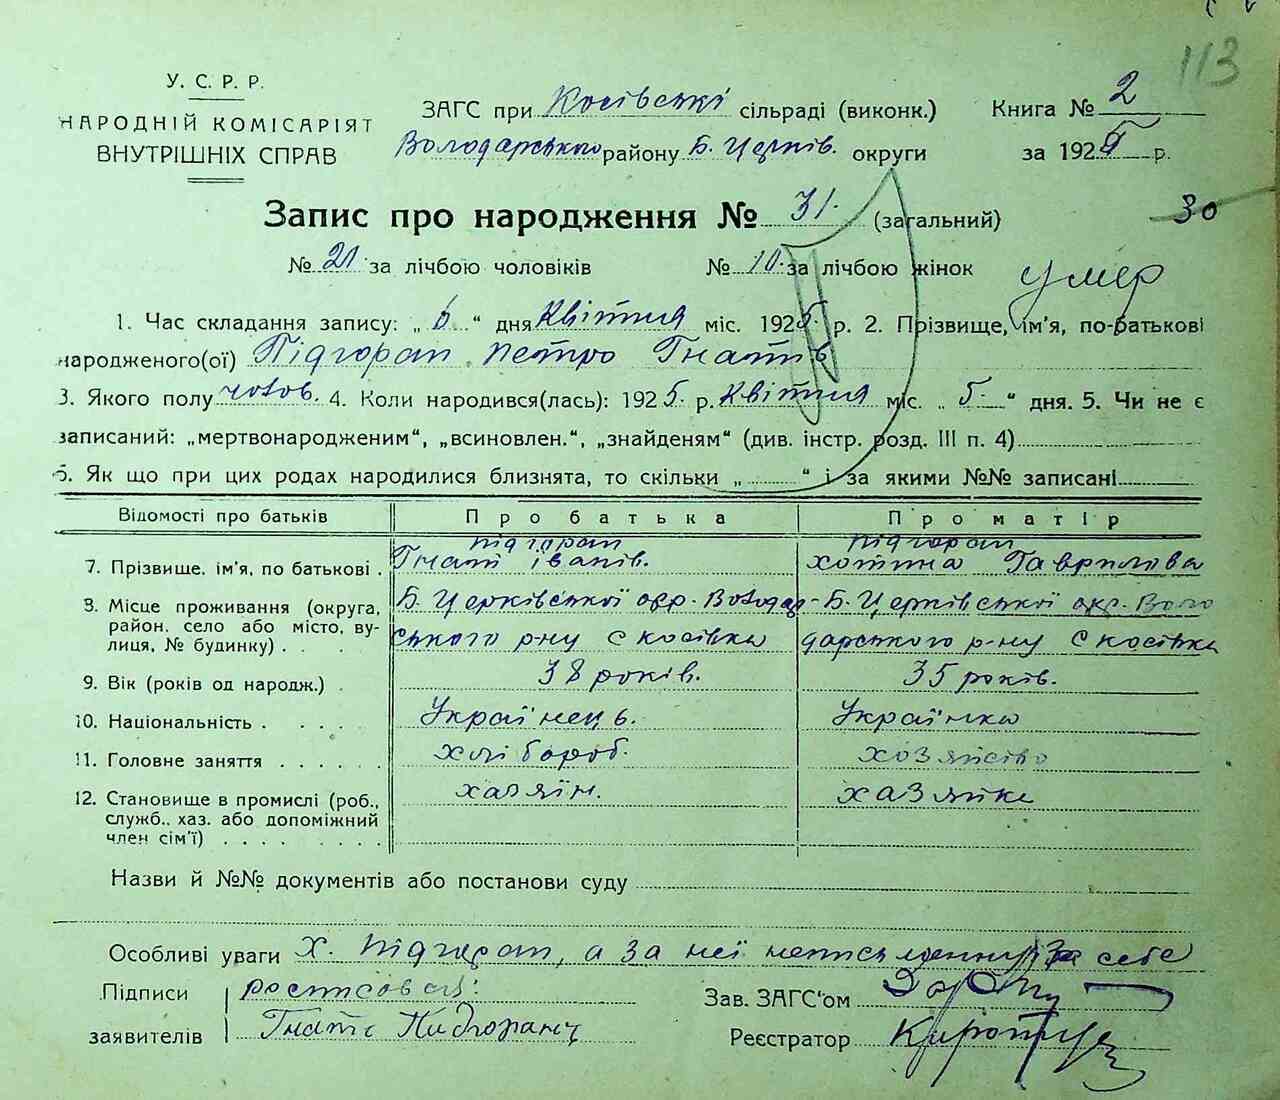 113
У. С. Р. Р.
НАРОДНІЙ КОМІСАРІЯТ
ВНУТРІШНІХ СПРАВ
ЗАГС при Косівські сільраді (виконк.)
Володарського району Б. Церків. округи
Книга № 2
за 1925 р.
Запис про народження № 31. (загальний)
30
№ 21. за лічбою чоловіків № 10. за лічбою жінок
умер
1. Час складання запису: „ 6 “ дня Квітня міс. 1925 р. 2. Прізвище, ім'я, по-батькові
народженого(ої) Підгорап Петро Гнатів
3. Якого полу чолов. 4. Коли народився(лась): 1925. р. Квітня міс. „ 5. “ дня. 5. Чи не є
записаний: „мертвонародженим“, „всиновлен.“, „знайденям“ (див. інстр. розд. III п. 4)
6. Як що при цих родах народилися близнята, то скільки „ “ і за якими №№ записані
Відомості про батьків Про батька Про матір
Підгорап Підгорап
7. Прізвище. ім'я, по батькові . Гнат Іванів. Хотина Гаврилова
8. Місце проживання (округа, район, село або місто, вулиця, № будинку) . . Б. Церківської окр. Володар-ського р-ну С Косівка Б. Церківської окр. Володарського р-ну С Косівка
9. Вік (років од народж.) . 38 років. 35 років.
10. Національність . . . . . Українець. Українка
11. Головне заняття . . . . . . хлібороб. хозяйство
12. Становище в промислі (роб., служб.. хаз. або допоміжний член сім'ї) . . . . . . . . хазяїн. хазяйке
Назви й №№ документів або постанови суду
Особливі уваги Х. Підгорап, а за неї неписьменну за себе
Підписи росписовся:
заявителів Гнатъ Пидгорапъ
Зав. ЗАГС'ом
Реєстратор